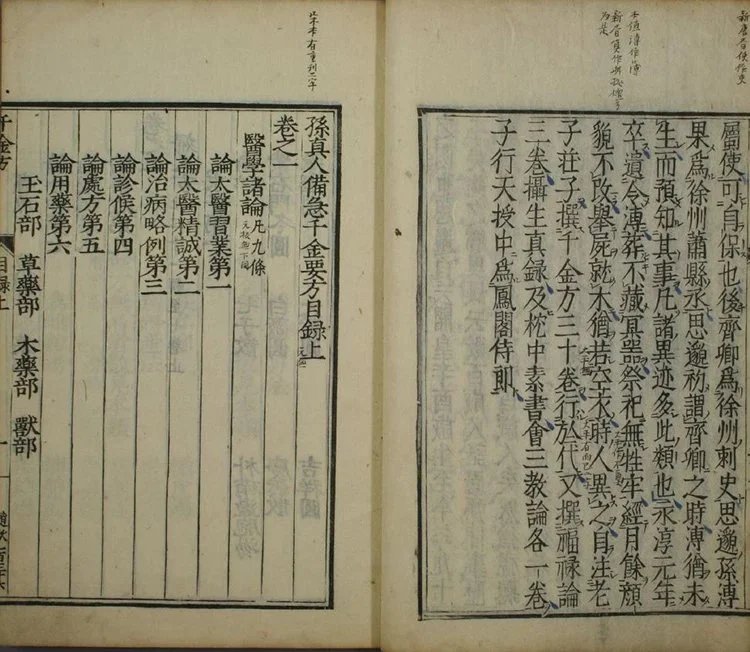 屬使可自保也後齊卿爲徐州刺史思邈孫溥
果爲徐州蕭縣丞思邈初謂齊卿之時溥猶未
生而預知其事凡諸異迹多此類也永淳元年
卒遺令溥葬不藏冥器祭祀無牲牢經月餘顔
貌不改舉屍就木猶若空衣時人異之自注老
子莊子撰千金方三十卷行於代又撰福禄論
三卷攝生真録及枕中素書會三教論各一卷
子行天授中爲鳳閣侍郎
孫真人備急千金要方目録上
卷之一
醫學諸論凡九條
論太醫習業第一
論太醫精誠第二
論治病略例第三
論診候第四
論處方第五
論用藥第六
玉石部 草藥部 木藥部 獸部
千金方 目録上 一